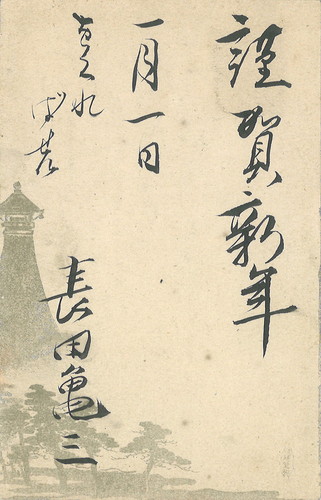 謹賀新年
一月一日
長田亀三